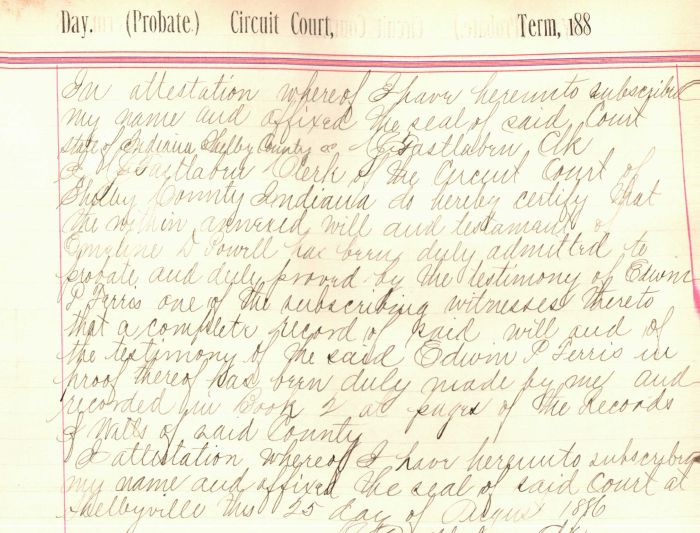 Day. (Probate.) Circuit Court, Term, 188
In attestation whereof I have hereunto subscribed
my name and affixed the seal of said Court
state of Indiana Shelby County ss Clk
I Clerk of the Circuit Court of
Shelby County Indiana do hereby certify that
the within annexed will and testament of
Emyline D Powell has been duly admitted to
probate and duly proved by the testimony of Edwin
P Ferris one of the subscribing witnesses thereto
that a complete record of said will and of
the testimony of the said Edwin P Ferris in
proof thereof has been duly made by me and
recorded in Book 2 at pages of the Records
of Wills of said County
I attestation whereof I have hereunto subscribed
my name and affixed the seal of said Court at
Shelbyville this 25 day of August 1886